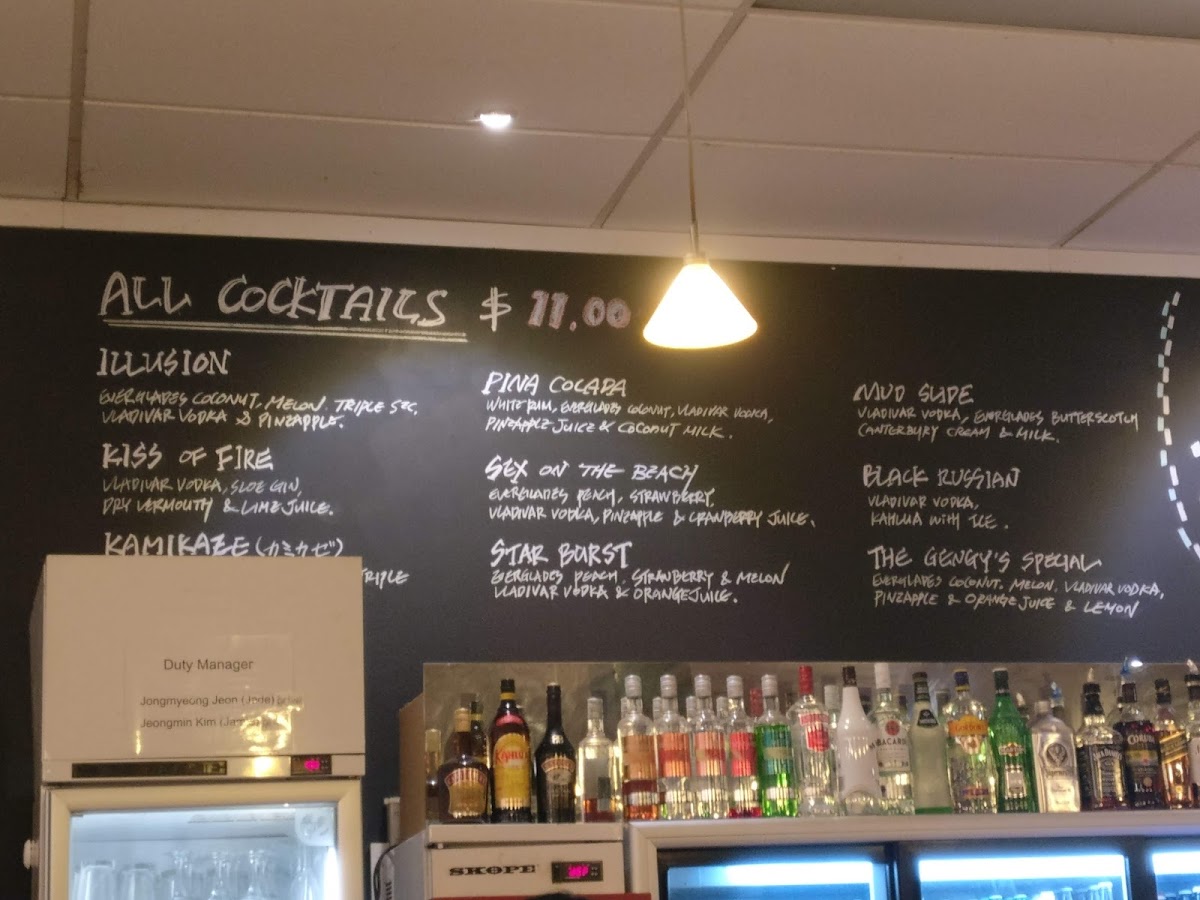 ALL COCKTAILS $ 11.00
ILLUSION
EVERGLADES COCONUT, MELON, TRIPLE SEC,
VLADIVAR VODKA & PINEAPPLE.
KISS OF FIRE
VLADIVAR VODKA, SLOE GIN,
DRY VERMOUTH & LIME JUICE.
KAMIKAZE (カミカゼ)
TRIPLE
PINA COLADA
WHITE RUM, EVERGLADES COCONUT, VLADIVAR VODKA,
PINEAPPLE JUICE & COCONUT MILK.
SEX ON THE BEACH
EVERGLADES PEACH, STRAWBERRY,
VLADIVAR VODKA, PINEAPPLE & CRANBERRY JUICE.
STAR BURST
EVERGLADES PEACH, STRAWBERRY & MELON
VLADIVAR VODKA & ORANGE JUICE.
MUD SLIDE
VLADIVAR VODKA, EVERGLADES BUTTERSCOTCH
CANTERBURY CREAM & MILK.
BLACK RUSSIAN
VLADIVAR VODKA,
KAHLUA WITH ICE.
THE GENGY'S SPECIAL
EVERGLADES COCONUT, MELON, VLADIVAR VODKA,
PINEAPPLE & ORANGE JUICE & LEMON
Duty Manager
Jongmyeong Jeon (Jade)
Jeongmin Kim
KAHLUA
BACARDI
SKOPE